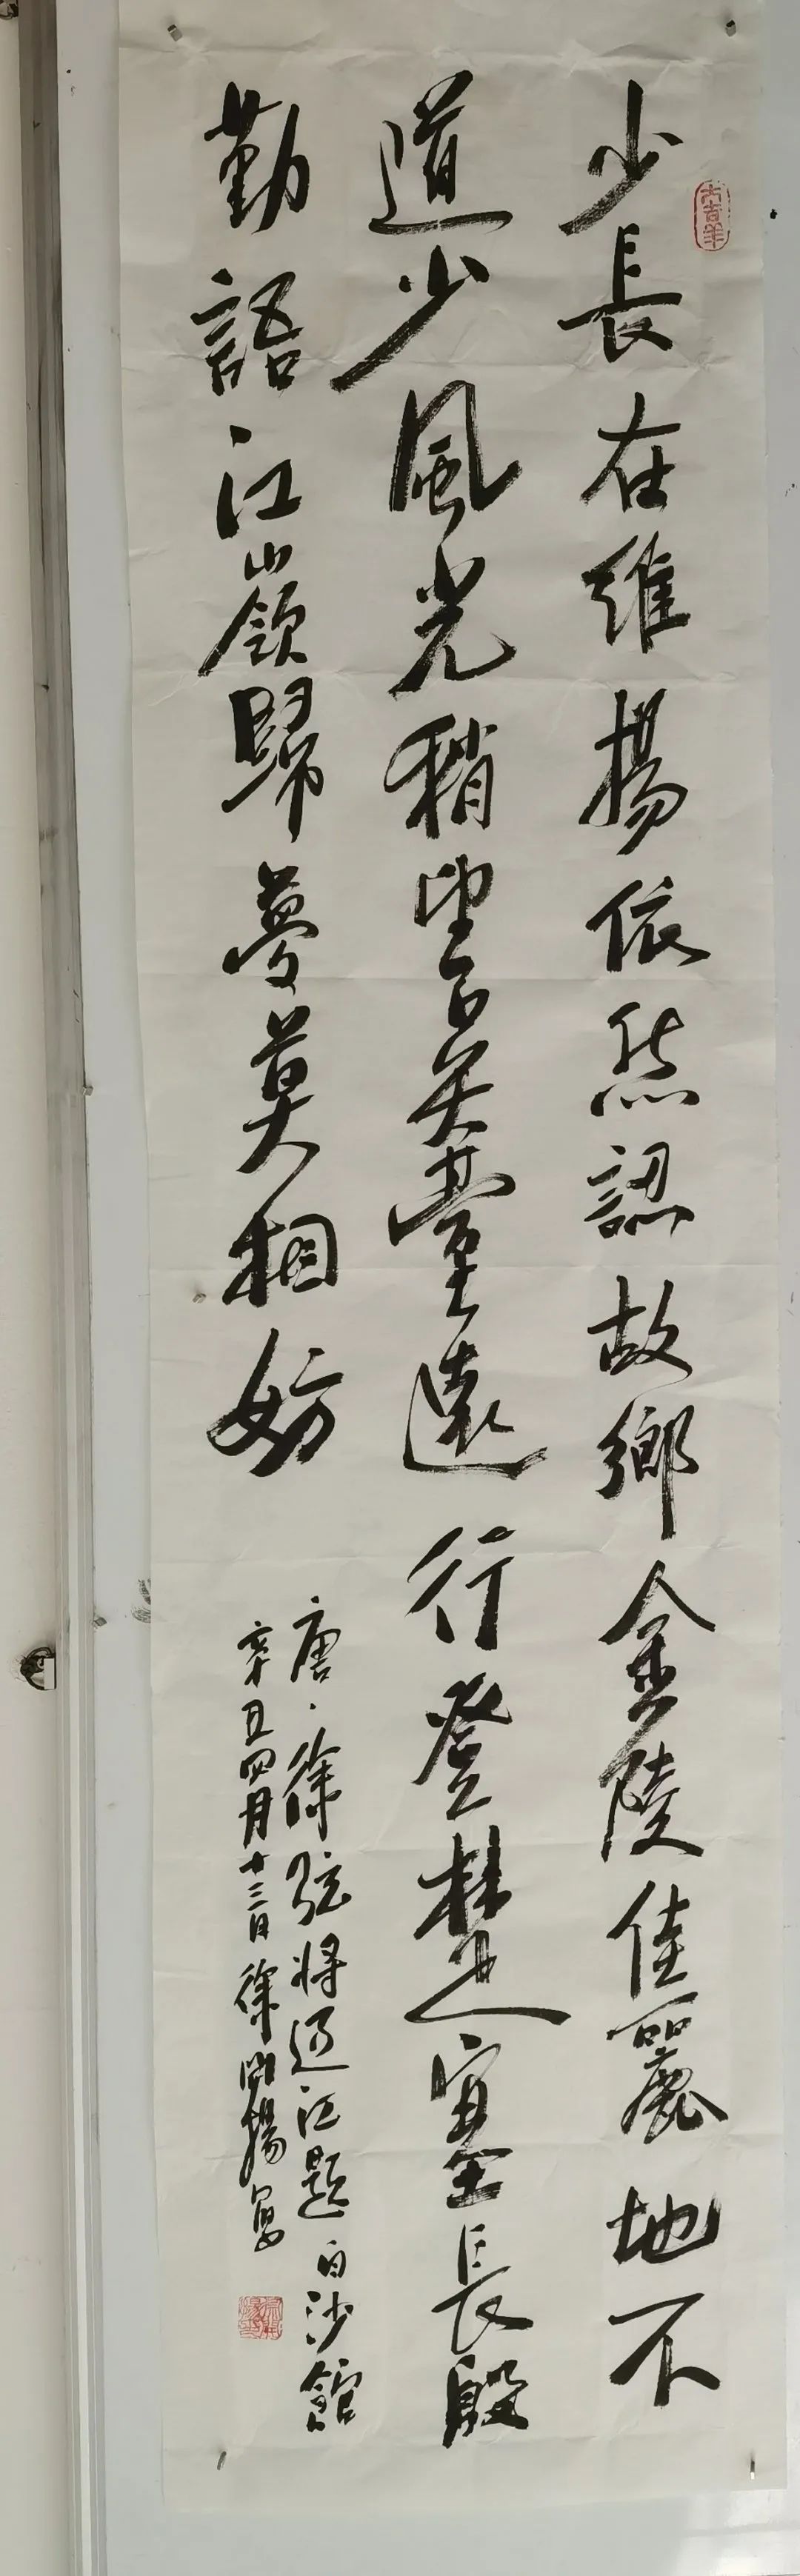 少長在維揚依然認故鄉金陵佳麗地不
道少風光稍望吳臺遠行登楚塞長殷
勤語江嶺歸夢莫相妨
唐·徐鉉將過江題白沙館
辛丑四月十三日徐揚寫
大吉羊